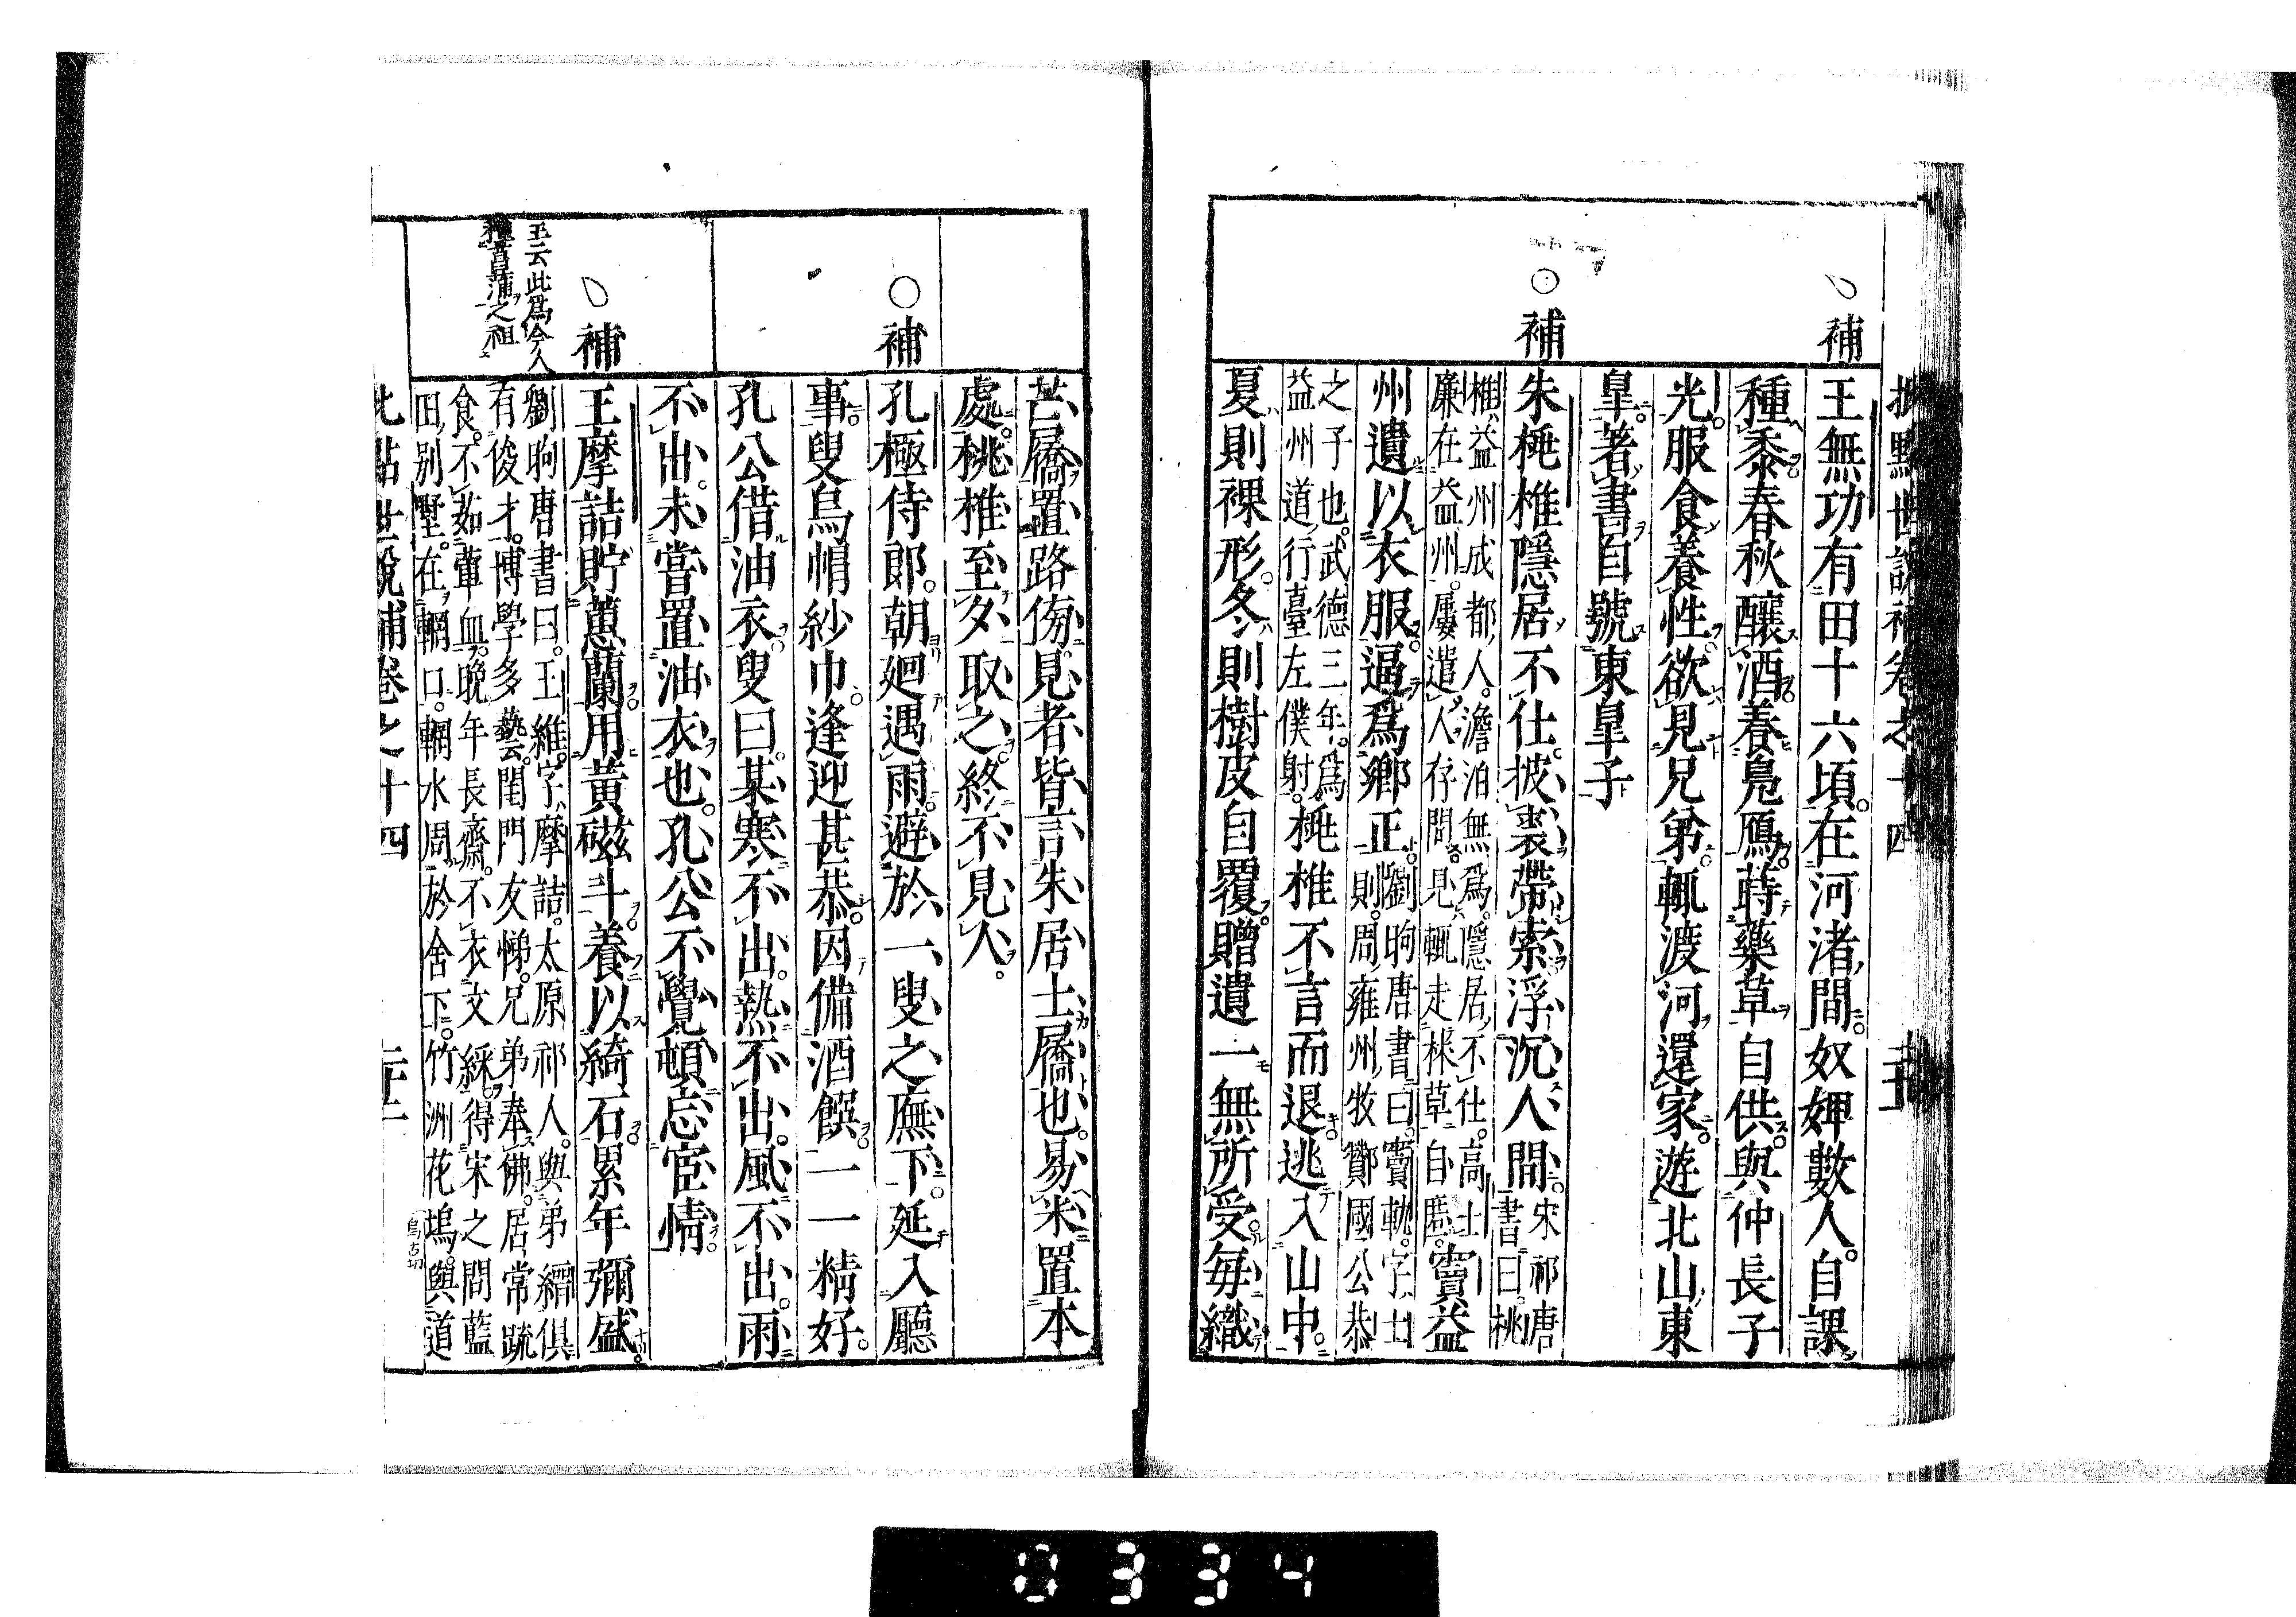 批點世說補卷之十四
補
王無功有田十六頃。在河渚間。奴婢數人。自課
種黍。春秋釀酒。養鳧鴈。蒔藥草自供。與仲長子
光。服食養性。欲見兄弟。輒渡河還家。遊北山東
皐。著書自號東皐子
補
朱桃椎隱居不仕。披裘帶索。浮沉人間。
宋祁唐
書曰。桃
椎。益州成都人。澹泊無爲。隱居不仕。高士
廉在益州。屢遣人存問。見輒走林草自匿。
竇益
州遺以衣服。逼爲鄉正。
劉昫唐書曰。竇軌。字士
則。周雍州牧鄼國公恭
之子也。武德三年。爲
益州道行臺左僕射。
桃椎不言而退。逃入山中。
夏則裸形。冬則樹皮自覆。贈遺一無所受。每織
芒屩置路傍。見者皆言。朱居士屩也。易米置本
處。桃椎至夕取之。終不見人。
補
孔極侍郎。朝廻遇雨。避於一叟之廡下。延入廳
事。叟烏帽紗巾。逢迎甚恭。因備酒饌。一一精好。
孔公借油衣。叟曰。某寒不出。熱不出。風不出。雨
不出。未嘗置油衣也。孔公不覺頓忘宦情。
補
王摩詰貯蕙蘭。用黃磁斗。養以綺石。累年彌盛。
王云此爲今人
種菖蒲之祖
劉昫唐書曰。王維。字摩詰。太原祁人。與弟縉俱
有俊才。博學多藝。閨門友悌。兄弟奉佛。居常蔬
食。不茹葷血。晚年長齋。不衣文綵。得宋之問藍
田別墅。在輞口。輞水周於舍下。竹洲花塢。與道
塢古切
批點世說補卷之十四